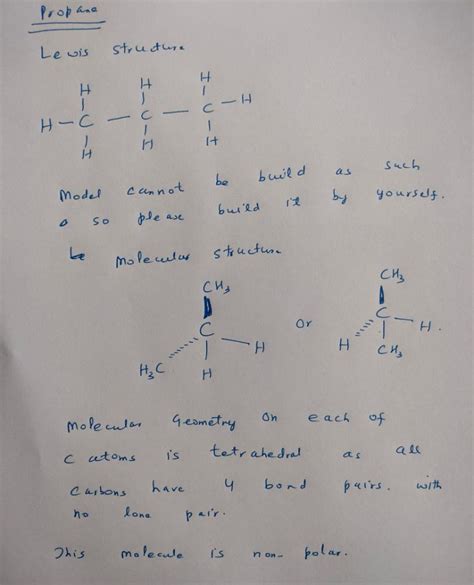 Propane
Lewis structure
H H H
H - C - C - C - H
H H H
Model cannot be build as such
so please build it by yourself.
Molecular structure
CH3 CH3
C - H or C - H.
H3C H H CH3
Molecular Geometry on each of
C atoms is tetrahedral as all
carbons have 4 bond pairs. with
no lone pair.
This molecule is non-polar.